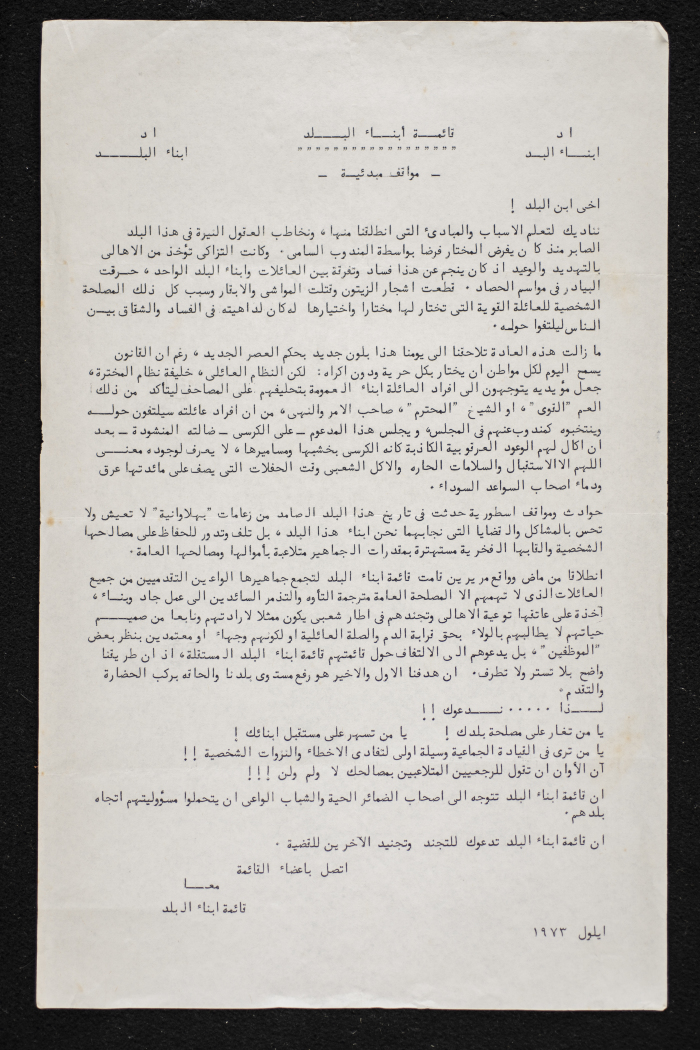 اد قائمـــة أبنـــاء البــــلد اد
ابنـــاء البـد ابناء البلــــد
" " " " " " " " " " " " " " " " " "
ـ مواقف مبدئيـة ـ
اخى ابن البلد !
نناديك لتعلم الاسباب والمبادئ التى انطلقنا منها، ونخاطب العقول النيرة فى هذا البلد
الصابر منذ كان يفرض المختار فرضا بواسطة المندوب السامى. وكانت التزاكى تؤخذ من الاهالى
بالتهديد والوعيد اذ كان ينجم عن هذا فساد وتفرقة بين العائلات وابناء البلد الواحد، حـرقت
البيادر فى مواسم الحصاد . قطعت اشجار الزيتون وقتلت المواشى والابقار وسبب كل ذلك المصلحة
الشخصية للعائلة القوية التى تختار لها مختارا واختيارها له كان لداهيته فى الفساد والشقاق بيـن
الناس ليلتفوا حولـه.
ما زالت هذه العادة تلاحقنا الى يومنا هذا بلون جديد بحكم العصر الجديد، رغم ان القانون
يسمح اليوم لكل مواطن ان يختار بكل حرية ودون اكراه: لكن النظام العائلى، خليفة نظام المخترة،
جعل مؤيديه يتوجهون الى افراد العائلة ابناء العمومة بتحليفهم على المصاحف ليتأكد من ذلك
العم "القوى"، او الشيخ "المحترم"، صاحب الامر والنهى، من ان افراد عائلته سيلتفون حولــه
وينتخبوه كمندوب عنهم فى المجلس، ويجلس هذا المدعوم ـ على الكرسى ـ ضالته المنشودة ـ بعد
ان اكال لهم الوعود العرقوبية الكاذبة كانه الكرسى بخشبها ومساميرها، لا يعرف لوجوده معنــى
اللهم الا الاستقبال والسلامات الحاره والاكل الشعبى وقت الحفلات التى يصف على مائدتها عرق
ودماء اصحاب السواعد السوداء.
حوادث ومواقف اسطورية حدثت فى تاريخ هذا البلد الصامد من زعامات "بهلاوانية" لا تعيش ولا
تحس بالمشاكل والقضايا التى نجابهها نحن ابناء هذا البلد، بل تلف وتدور للحفاظ على مصالحها
الشخصية والقابها الفخرية مستهترة بمقدرات الجماهير متلاعبة بأموالها ومصالحها العامة.
انطلاقا من ماض وواقع مريرين قامت قائمة ابناء البلد لتجمع جماهيرها الواعين التقدميين من جميع
العائلات الذى لا تهمهم الا المصلحة العامة مترجمة التأوه والتذمر السائدين الى عمل جاد وبنـاء،
آخذة على عاتقها توعية الاهالى وتجندهم فى اطار شعبى يكون ممثلا لارادتهم ونابعا من صميــم
حياتهم لا يطالبهم بالولاء بحق قرابة الدم والصلة العائلية او لكونهم وجهاء او معتمدين بنظر بعض
"الموظفين"، بل يدعوهم الى الالتفاف حول قائمتهم قائمة ابناء البلد المستقلة، اذ ان طريقنا
واضح بلا تستر ولا تطرف. ان هدفنا الاول والاخير هو رفع مستوى بلدنا والحاقه بركب الحضارة
والتقدم.
لـــذا ..... نــدعوك !!
يا من تغار على مصلحة بلدك ! يا من تسهر على مستقبل ابنائك !
يا من ترى فى القيادة الجماعية وسيلة اولى لتفادى الاخطاء والنزوات الشخصية !!
آن الأوان ان تقول للرجعيين المتلاعبين بمصالحك لا ولم ولن !!!
ان قائمة ابناء البلد تتوجه الى اصحاب الضمائر الحية والشباب الواعى ان يتحملوا مسؤوليتهم اتجاه
بلدهم.
ان قائمة ابناء البلد تدعوك للتجند وتجنيد الآخرين للقضية .
اتصل باعضاء القائمة
معـــا
قائمة ابناء البلد
ايلول ١٩٧٣